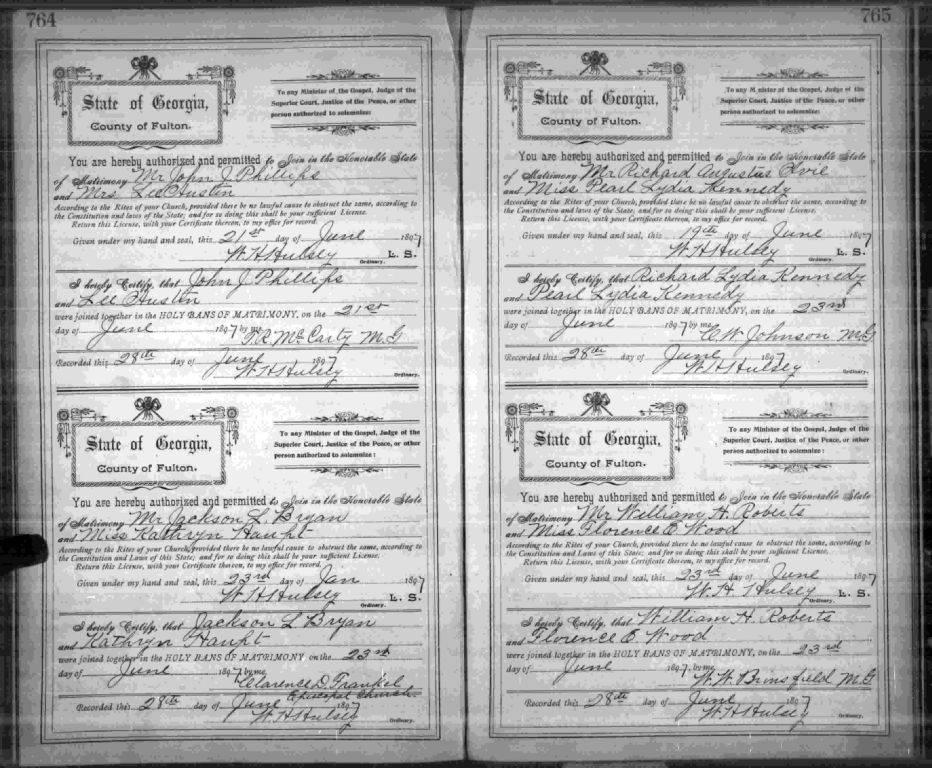 764
State of Georgia,
County of Fulton.
To any Minister of the Gospel, Judge of the
Superior Court, Justice of the Peace, or other
person authorized to solemnize:
You are hereby authorized and permitted to Join in the Honorable State
of Matrimony Mr John J Phillips
and Mrs Lee Austin
According to the Rites of your Church, provided there be no lawful cause to obstruct the same, according to
the Constitution and laws of the State; and for so doing this shall be your sufficient License.
Return this License, with your Certificate thereon, to my office for record.
Given under my hand and seal, this 21st day of June 1897
W H Hulsey L. S.
Ordinary.
I hereby Certify, that John J Phillips
and Lee Austin
were joined together in the HOLY BANS OF MATRIMONY, on the 21st
day of June 1897 by me,
McCarty M.G
Recorded this 28th day of June 1897
W H Hulsey
Ordinary.
State of Georgia,
County of Fulton.
To any Minister of the Gospel, Judge of the
Superior Court, Justice of the Peace, or other
person authorized to solemnize:
You are hereby authorized and permitted to Join in the Honorable State
of Matrimony Mr Jackson L Bryan
and Miss Kathryn Haupt
According to the Rites of your Church, provided there be no lawful cause to obstruct the same, according to
the Constitution and Laws of this State; and for so doing this shall be your sufficient License.
Return this License, with your Certificate thereon, to my office for record.
Given under my hand and seal, this 23rd day of Jan 1897
W H Hulsey L. S.
Ordinary.
I hereby Certify, that Jackson L Bryan
and Kathryn Haupt
were joined together in the HOLY BANS OF MATRIMONY, on the 23rd
day of June 1897, by me,
Clarence D. Frankel
Episcopal Church
Recorded this 28th day of June 1897
W H Hulsey
Ordinary.
765
State of Georgia,
County of Fulton.
To any Minister of the Gospel, Judge of the
Superior Court, Justice of the Peace, or other
person authorized to solemnize:
You are hereby authorized and permitted to Join in the Honorable State
of Matrimony Mr Richard Augustus
and Miss Pearl Lydia Kennedy
According to the Rites of your Church, provided there be no lawful cause to obstruct the same, according to
the Constitution and laws of the State; and for so doing this shall be your sufficient License.
Return this License, with your Certificate thereon, to my office for record.
Given under my hand and seal, this 19th day of June 1897
W H Hulsey L. S.
Ordinary.
I hereby Certify, that Richard Lydia Kennedy
and Pearl Lydia Kennedy
were joined together in the HOLY BANS OF MATRIMONY, on the 23rd
day of June 1897 by me,
C. W Johnson M.G
Recorded this 28th day of June 1897
W H Hulsey
Ordinary.
State of Georgia,
County of Fulton.
To any Minister of the Gospel, Judge of the
Superior Court, Justice of the Peace, or other
person authorized to solemnize:
You are hereby authorized and permitted to Join in the Honorable State
of Matrimony Mr William H. Roberts
and Miss Florence E Wood
According to the Rites of your Church, provided there be no lawful cause to obstruct the same, according to
the Constitution and Laws of this State; and for so doing this shall be your sufficient License.
Return this License, with your Certificate thereon, to my office for record.
Given under my hand and seal, this 23rd day of June 1897
W. H. Hulsey L. S.
Ordinary.
I hereby Certify, that William H. Roberts
and Florence E Wood
were joined together in the HOLY BANS OF MATRIMONY, on the 23rd
day of June 1897, by me,
W. W. Brinsfield M.G
Recorded this 28th day of June 1897
W H Hulsey
Ordinary.